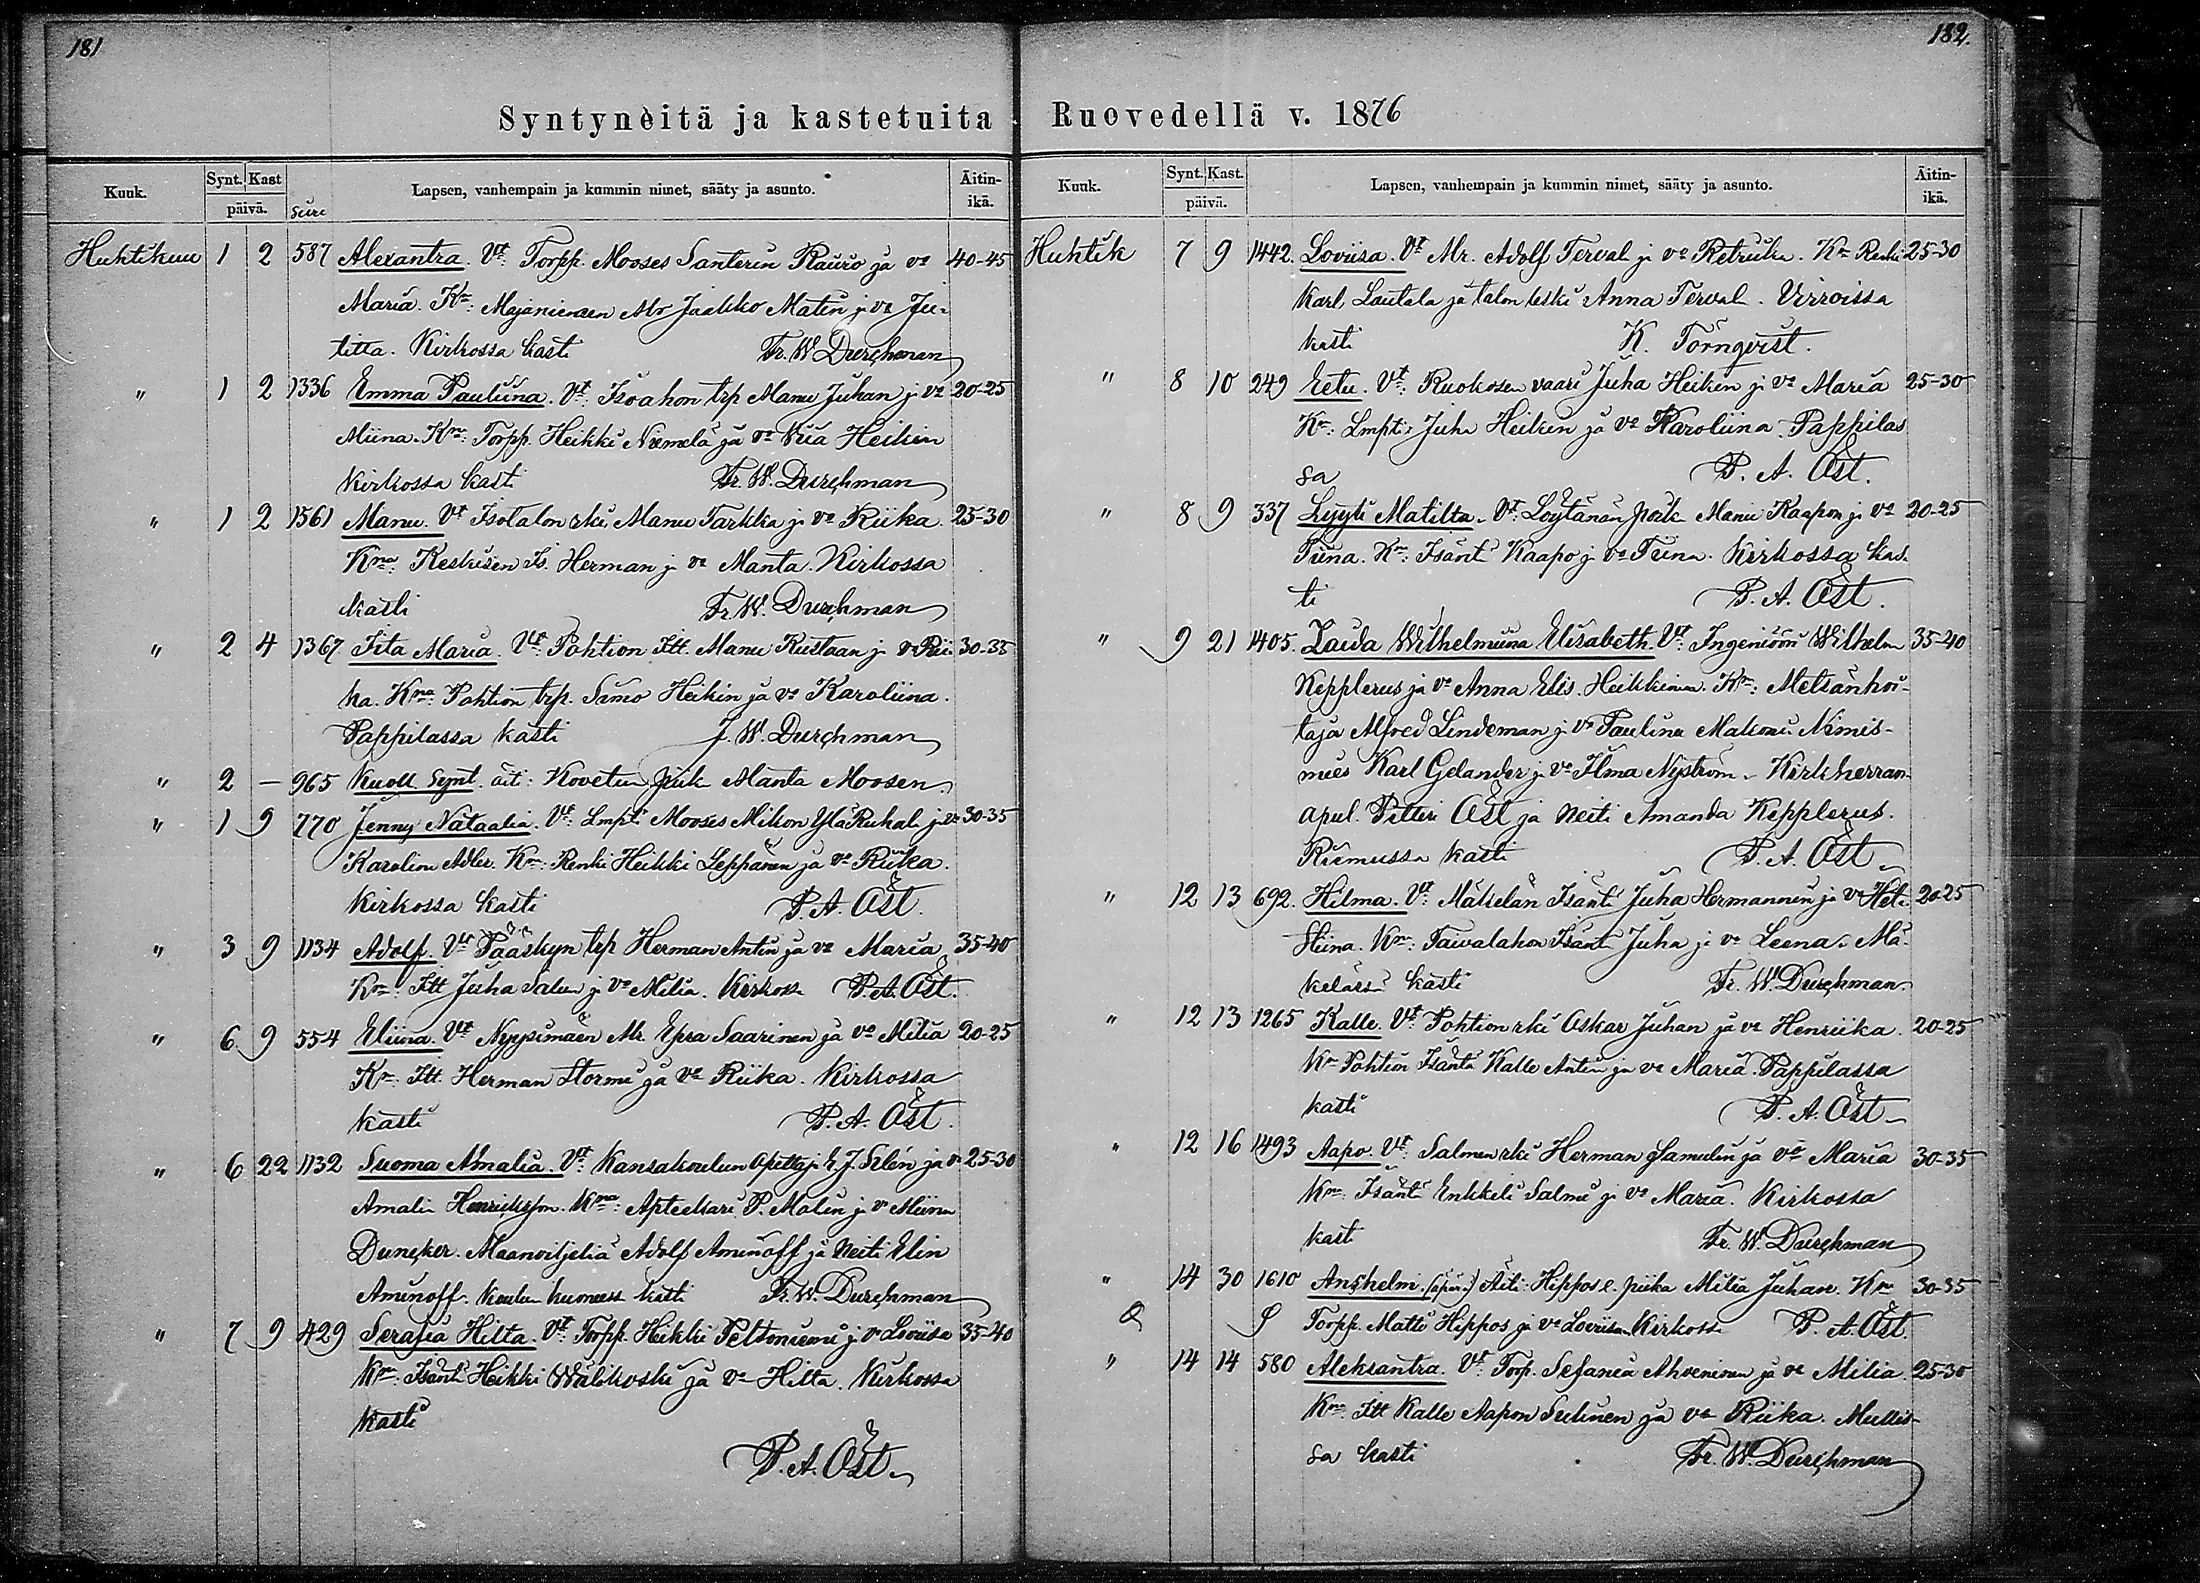 181
Syntyneitä ja kastetuita
Kuuk.
Synt. Kast
päivä.
Lapsen, vanhempain ja kummin nimet, sääty ja asunto.
Äitin-
ikä.
Huhtikuu 1 2 587 Alexantra. Vt: Torpp. Mooses Santerin Rauro ja vo 40-45
Maria. Kn: Majaniemen Mr Jaakko Matin j. vo Ju-
titta. Kirkossa kasti Fr. W. Durchman
" 1 2 1336 Emma Pauliina. Vt: Isoahon trp Manu Juhan j. vo 20-25
Miina. Kn: Torpp. Heikki Niemelä ja vo Viia Heikin
Kirkossa kasti Fr. W. Durchman
" 1 2 1561 Manu. Vt Isotalon rki Manu Tarkka j. vo Riika. 25-30
Kna: Keskisen Is. Herman j. vo Manta. Kirkossa
kasti Fr. W. Durchman
" 2 4 1367 Iita Maria. Vt: Pohtion Itt. Manu Kustaan j. vo Rii- 30-35
ka. Kna: Pohtion trp. Simo Heikin ja vo Karoliina.
Pappilassa kasti F. W. Durchman
" 2 — 965 Kuoll. Synt. äit: Kovetun piik Manta Moosen.
" 1 9 770 Jenny Nataalia. Vt: Lmpt: Mooses Mikon YläRuhal. j. vo 30-35
Karolin Adler. Kn: Renki Heikki Leppänen ja vo Riika.
Kirkossa kasti P. A. Öst.
" 3 9 1134 Adolf. Vt Pääskyn trp Herman Antin ja vo Maria 35-40
Kn: Itt Juha Salun j. vo Milia. Kirkoss P. A. Öst.
" 6 9 554 Eliina. Vt Nyyssimäen Mr. Epra Saarinen ja vo Milia 20-25
Kn: Itt. Herman Stormi ja vo Riika. Kirkossa
kasti P. A. Öst.
" 6 22 1132 Suoma Amalia. Vt: Kansakoulun Opettaj. E. J. Silén ja v 25-30
Amalia Henriksson. Kna: Apteekari P. Malin j. v Miina
Duncker. Maanviljeliä Adolf Aminoff ja Neiti Elin
Aminoff. Koulun huoneess kasti Fr. W. Durchman
" 7 9 429 Serafia Hilta. Vt: Torpp. Heikki Peltoniemi j. v Loviisa 35-40
Kn: Isäntä Heikki Wäliskoski ja vo Hilta. Kirkossa
kasti
P. A. Öst.
182.
Ruovedellä v. 1876
Kuuk.
Synt. Kast.
päivä.
Lapsen, vanhempain ja kummin nimet, sääty ja asunto.
Äitin-
ikä.
Huhtik 7 9 1442. Loviisa. Vt Mr. Adolf Terval j. vo Retriika. Kn Renki 25-30
Karl Lautala ja talon leski Anna Terval. Virroissa
kasti K. Törnqvist.
" 8 10 249 Eetu. Vt: Ruokosen vaari Juha Heikin j. vo Maria 25-30
Kn: Lmpt: Juha Heikin ja vo Karoliina. Pappilas
sa P. A. Öst.
" 8 9 337 Lyyti Matilta. Vt: Löytänän poik Manu Kaapon j. vo 20-25
Tiina. Kn: Isäntä Kaapo j. vo Tiina. Kirkossa kas-
ti P. A. Öst.
" 9 21 1405. Laida Wilhelmiina Elisabeth. Vt: Ingeniööri Wilhelm 35-40
Kepplerus ja vo Anna Elis. Heikkinen. Kn: Metsänhoi-
taja Alfred Lindeman j. vo Paulina Malioni. Nimis-
mies Karl Gelander j. vo Ilma Nyström. Kirkherran
apul. Petteri Öst ja Neiti Amanda Kepplerus.
Riemussa kasti P. A. Öst.
" 12 13 692. Hilma. Vt: Mäkelän Isäntä Juha Hermannin ja vo Heta 20-25
Stiina. Kn: Taivalahon Isäntä Juha j. vo Leena. Mä-
kelässä kasti Fr. W. Durchman.
" 12 13 1265 Kalle. Vt: Pohtion rki Oskar Juhan ja vo Henriika. 20-25
Kn Pohtion Isäntä Kalle Antin ja vo Maria. Pappilassa
kasti P. A. Öst.
" 12 16 1493 Aapo. Vt: Salmen rki Herman Samulin ja vo Maria 30-35
Kn: Isäntä Enkkeli Salmi j. vo Maria. Kirkossa
kast Fr. W. Durchman
" 14 30 1610 Anshelm. (äpär.) Äiti: Hippos e. piika Milia Juhan. Kn 30-35
Torpp. Matti Hippos j. vo Loviisa. Kirkossa P. A. Öst.
" 14 14 580 Aleksantra. Vt: Torp. Sefania Ahveninen ja vo Milia. 25-30
Kn: Itt Kalle Aapon Sulinen ja vo Riika. Mullis-
sa kasti Fr. W. Durchman